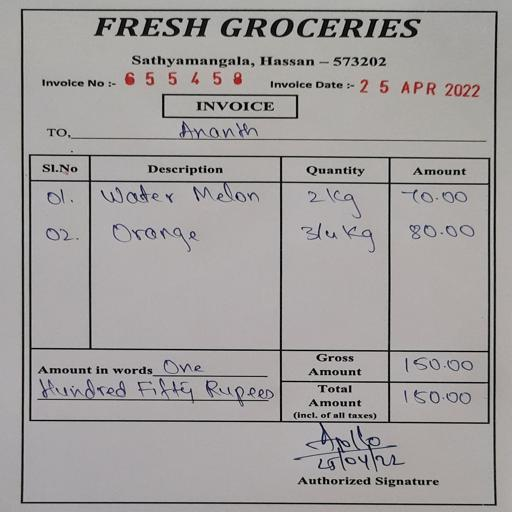 FRESH GROCERIES
Sathyamangala, Hassan – 573202
Invoice No :- 655458 Invoice Date :- 25 APR 2022
INVOICE
TO, Ananth
Sl.No Description Quantity Amount
01. Water Melon 2 Kg 70.00
02. Orange 3/4 Kg 80.00
Amount in words One
Hundred Fifty Rupees
Gross
Amount 150.00
Total
Amount
(incl. of all taxes) 150.00
Apllo
25/04/22
Authorized Signature